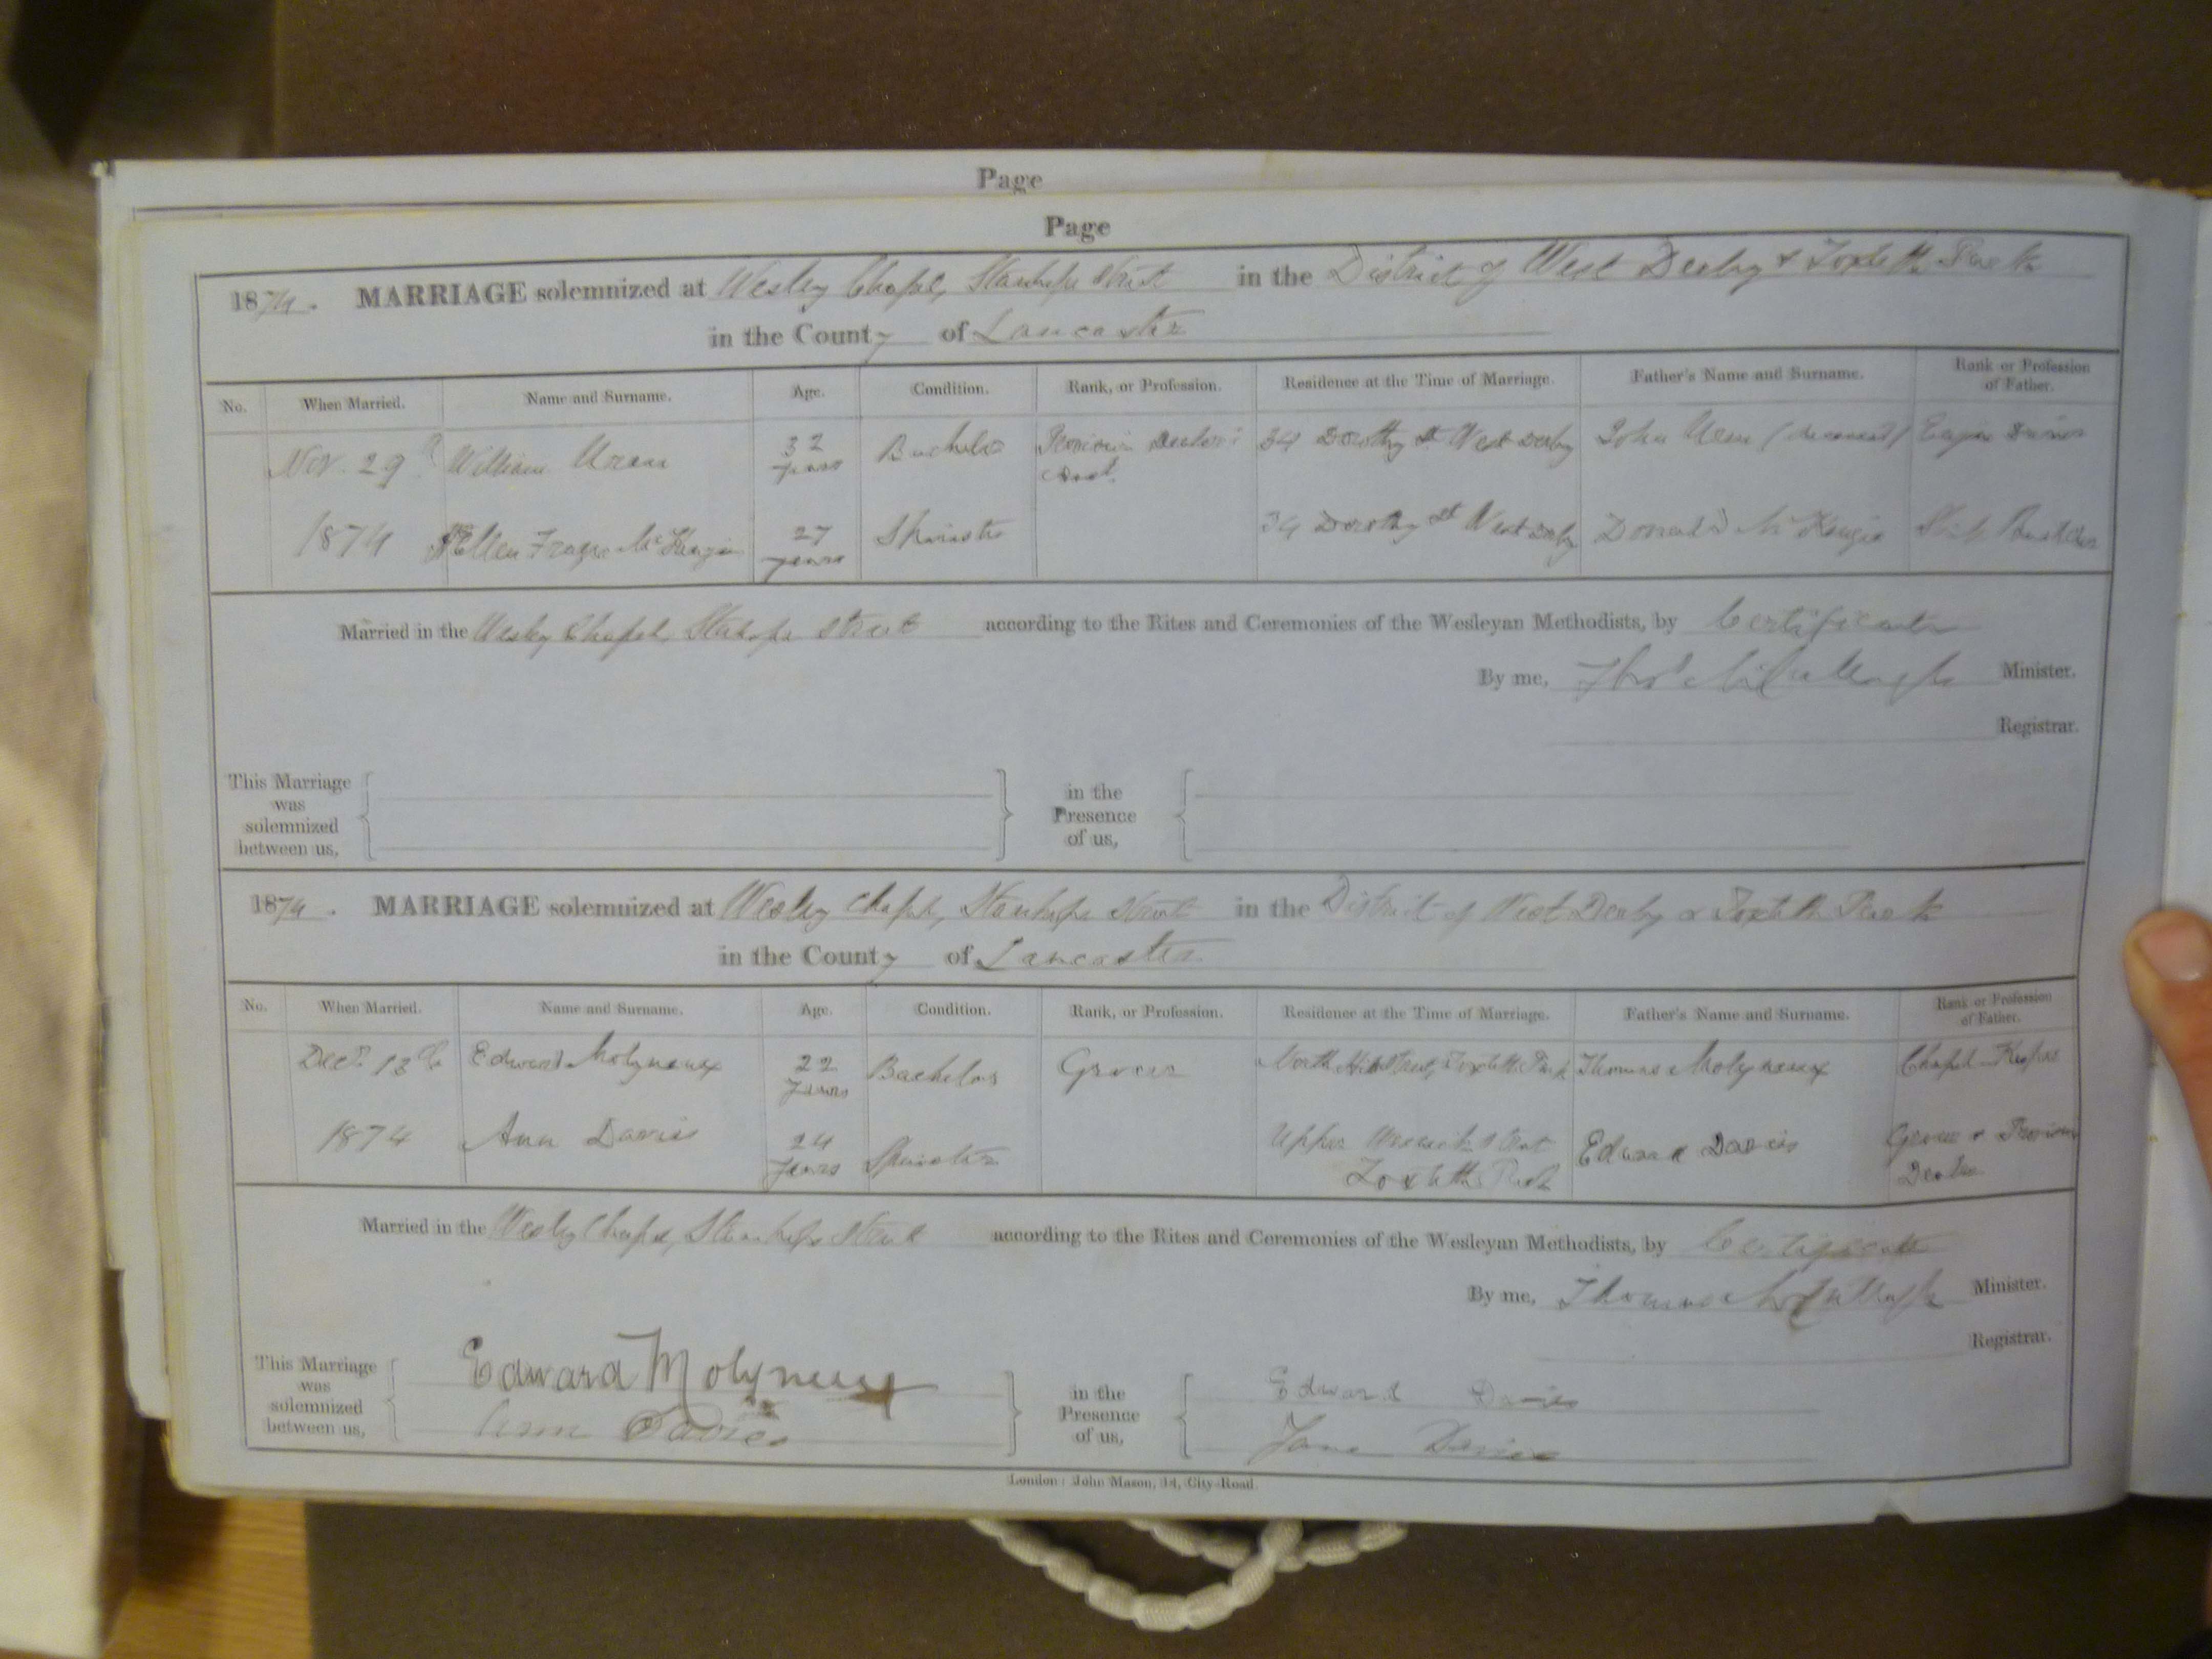 Page
Page
1874. MARRIAGE solemnized at Wesley Chapel, Stanhope Street in the District of West Derby & Toxteth Park
in the County of Lancaster
No. When Married. Name and Surname. Age. Condition. Rank, or Profession. Residence at the Time of Marriage. Father's Name and Surname. Rank or Profession of Father.
Nov. 29 William 32 years Bachelor 34 Dorothy St West Derby John (deceased)
1874 Ellen Fraser McKenzie 27 years Spinster 34 Dorothy St West Derby Donald McKenzie Ship Builder
Married in the Wesley Chapel, Stanhope Street according to the Rites and Ceremonies of the Wesleyan Methodists, by Certificate
By me, Thos McCullagh Minister.
Registrar.
This Marriage was solemnized between us, in the Presence of us,
1874. MARRIAGE solemnized at Wesley Chapel, Stanhope Street in the District of West Derby & Toxteth Park
in the County of Lancaster
No. When Married. Name and Surname. Age. Condition. Rank, or Profession. Residence at the Time of Marriage. Father's Name and Surname. Rank or Profession of Father.
Decr 13th Edward Molyneux 22 Years Bachelor Grocer North Street, Toxteth Park Thomas Molyneux Chapel-Keeper
1874 Ann Davis 24 Years Spinster Upper Warwick Street Toxteth Park Edward Davis Grocer & Provision Dealer
Married in the Wesley Chapel, Stanhope Street according to the Rites and Ceremonies of the Wesleyan Methodists, by Certificate
By me, Thomas McCullagh Minister.
Registrar.
This Marriage was solemnized between us, Edward Molyneux in the Presence of us, Edward Davis
Ann Davies Jane Davies
London: John Mason, 14, City-Road.